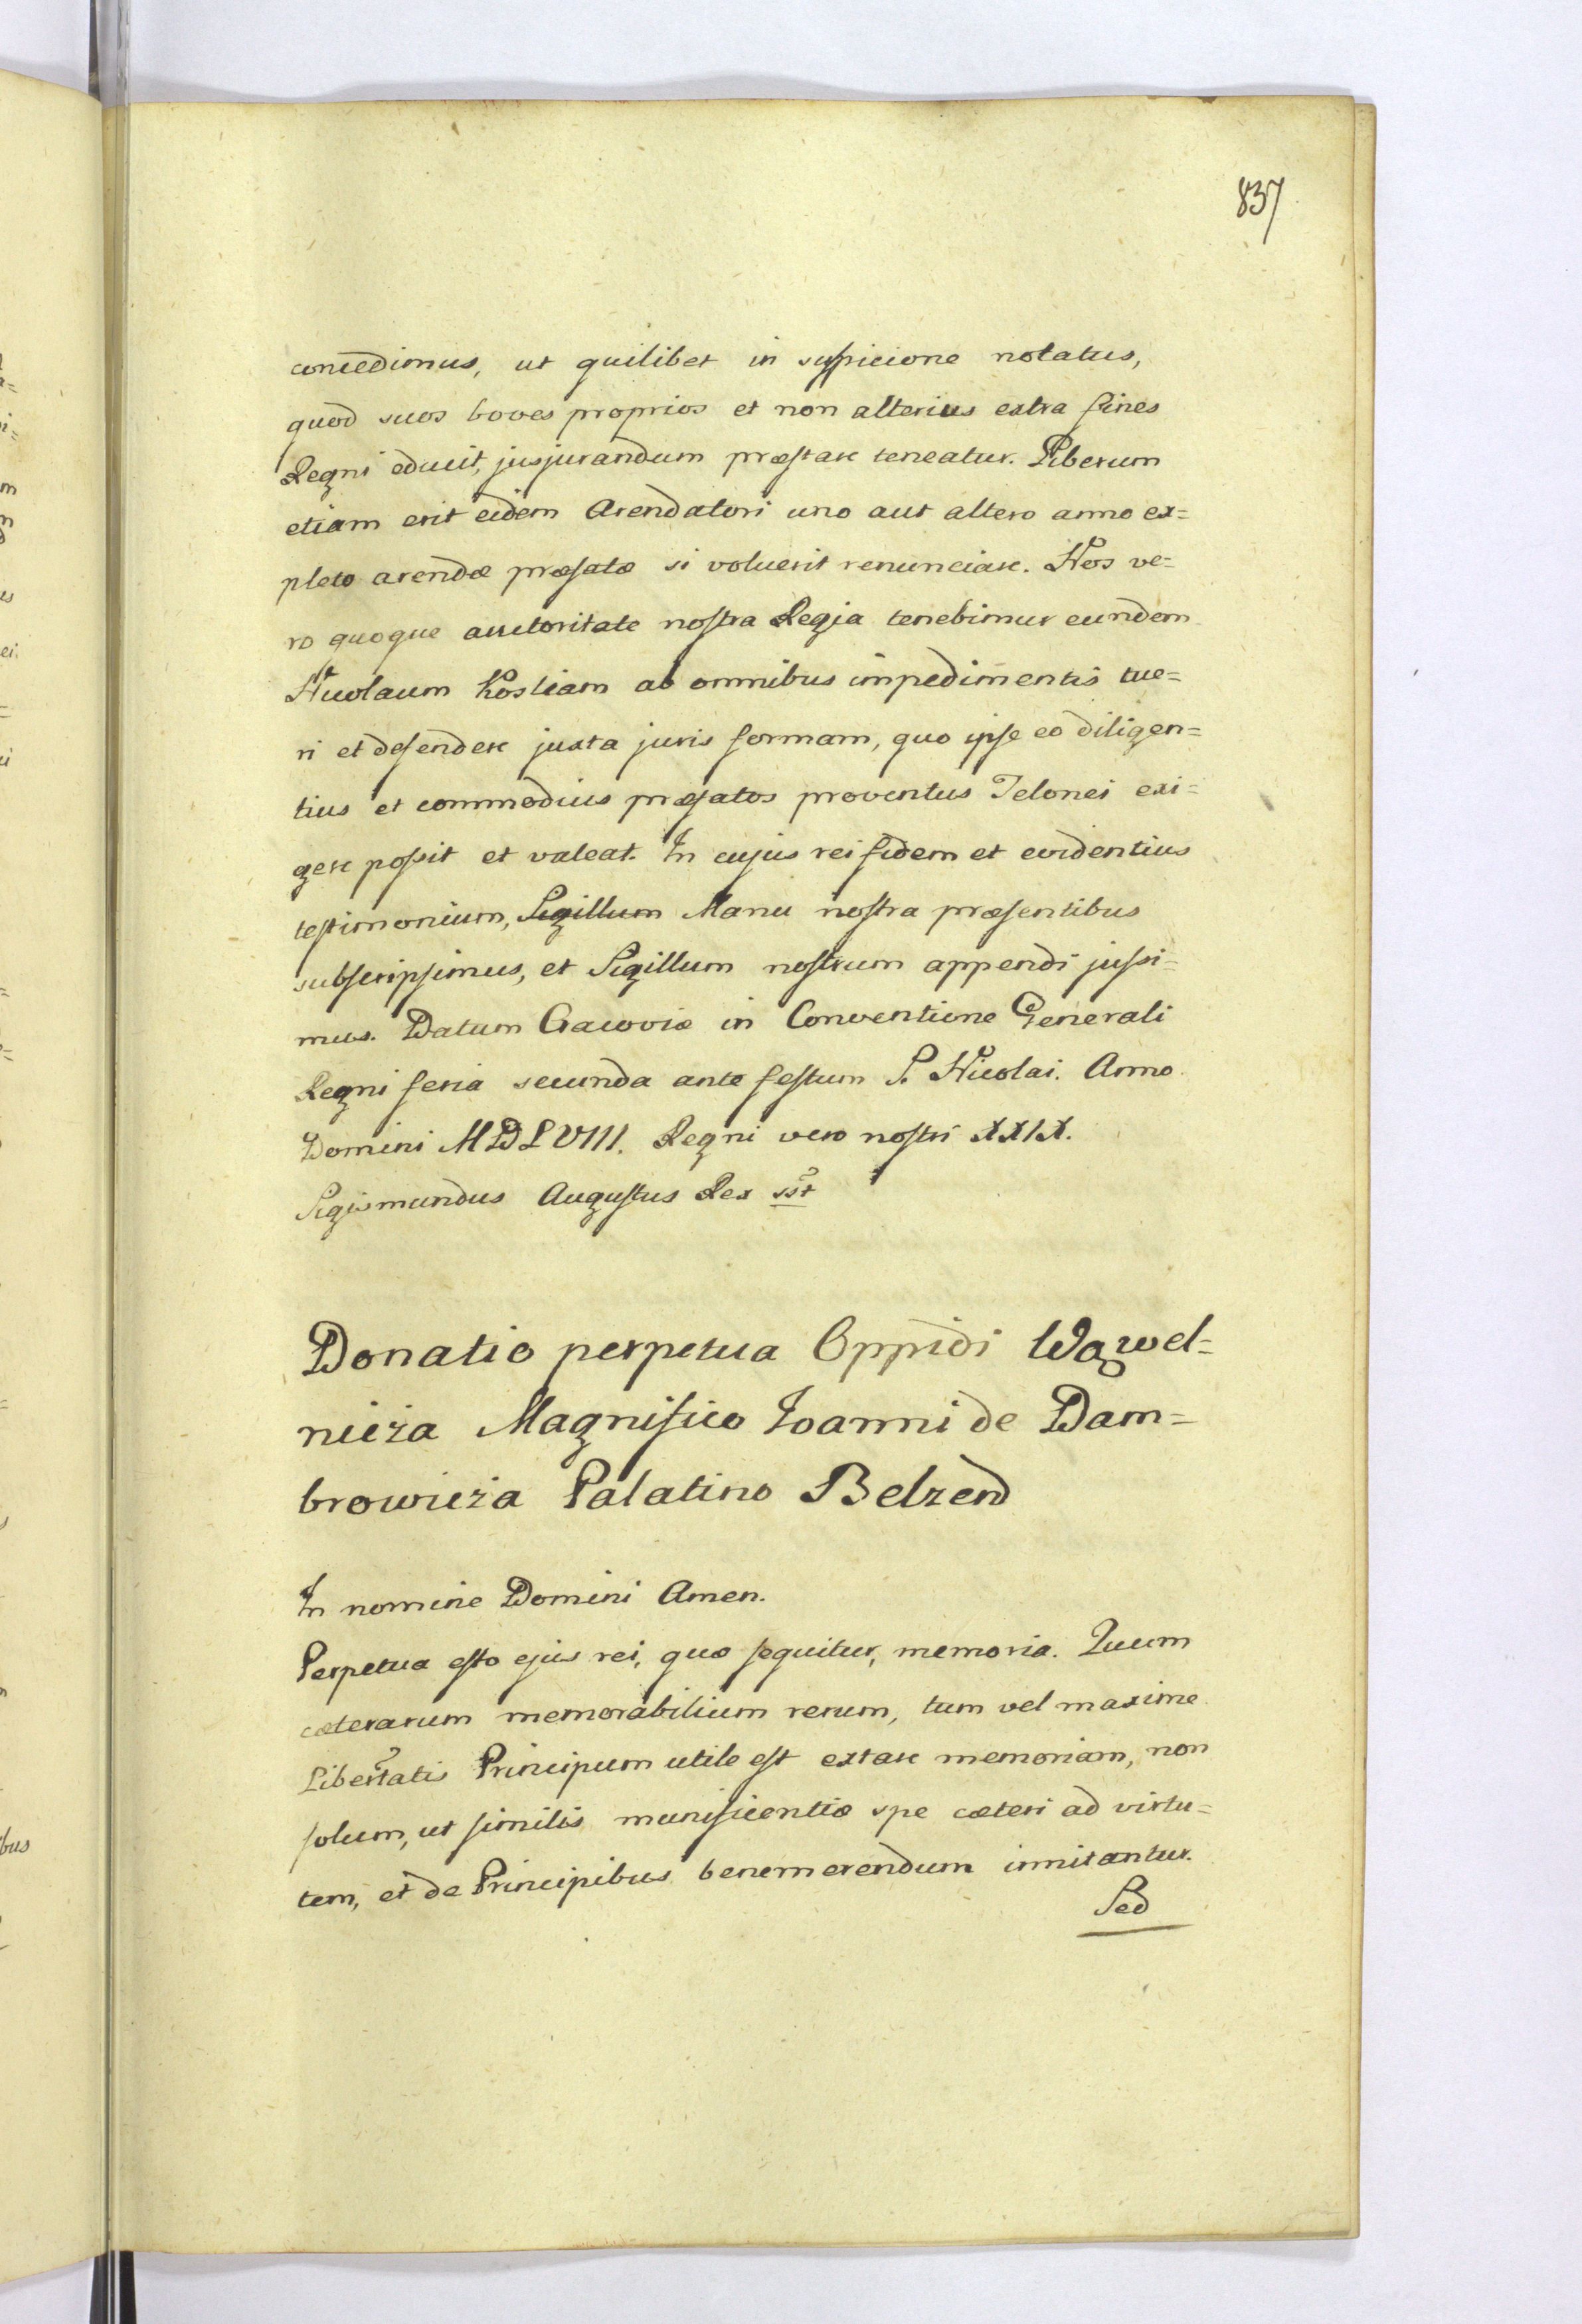 837
concedimus, ut quilibet in suspicione notatus,
quod suos boves proprios et non alterius extra fines
Regni educit, jusjurandum præstare teneatur. Liberum
etiam erit eidem Arendatori uno aut altero anno ex=
pleto arendæ præfatæ si voluerit renunciare. Nos ve=
ro quoque auctoritate nostra Regia tenebimur eundem
Nicolaum Kostiam ab omnibus impedimentis tue=
ri et defendere juxta juris formam, quo ipse eo diligen=
tius et commodius præfatos proventus Telonei exi=
gere possit et valeat. In cujus rei fidem et evidentius
testimonium, Sigillum Manu nostra præsentibus
subscripsimus, et Sigillum nostrum appendi jussi=
mus. Datum Cracoviæ in Conventione Generali
Regni feria secunda ante festum S. Nicolai. Anno
Domini MDLVIII. Regni vero nostri XXIX.
Sigismundus Augustus Rex sst
Donatio perpetua Oppidi Wąwel=
nicza Magnifico Joanni de Dam=
browicza Palatino Belzen
In nomine Domini Amen.
Perpetua esto ejus rei, quæ sequitur, memoria. Quum
cæterarum memorabilium rerum, tum vel maxime
Libertatis Principum utile est extare memoriam, non
solum, ut similis munificentiæ spe cæteri ad virtu=
tem, et de Principibus benemerendum innitantur.
Sed
bus